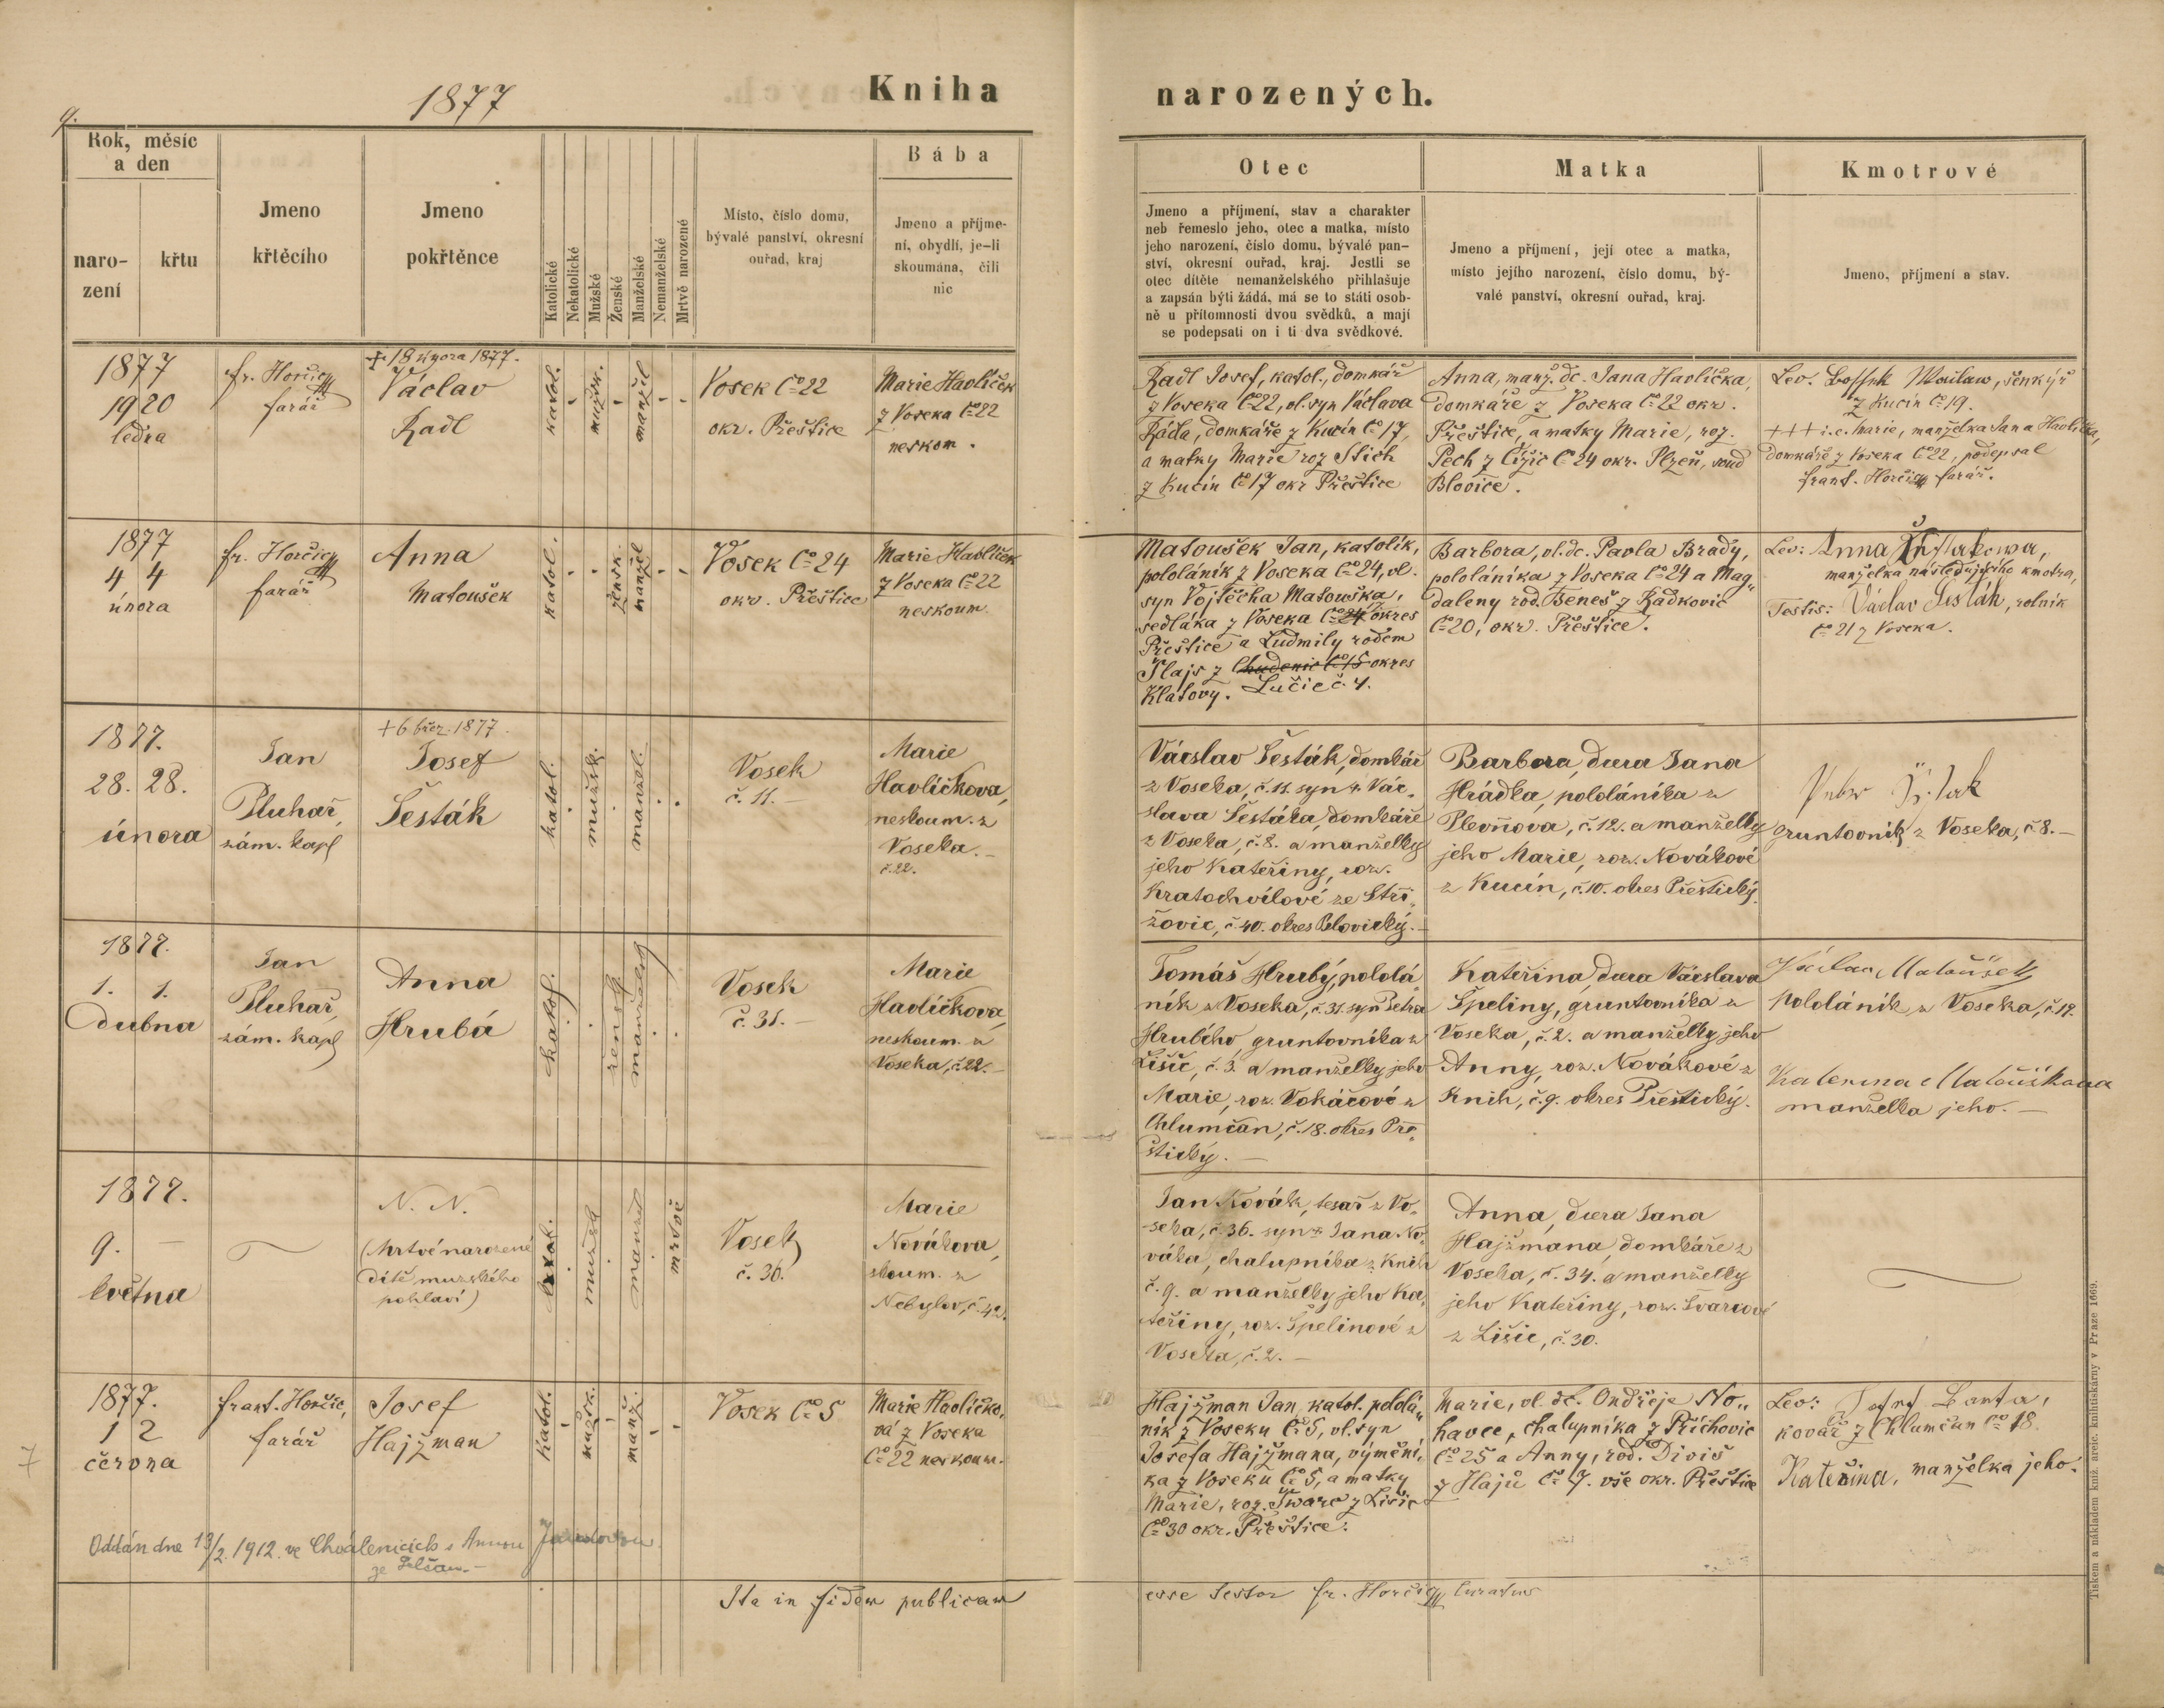 9.
1877
Kniha narozených.
Rok, měsíc
a den
naro-
zení
křtu
Jmeno
křtěcího
Jmeno
pokřtěnce
Katolické
Nekatolické
Mužské
Ženské
Manželské
Nemanželské
Mrtvě narozené
Místo, číslo domu,
bývalé panství, okresní
ouřad, kraj
Bába
Jmeno a příjme-
ní, obydlí, je-li
skoumána, čili
nic
Otec
Jmeno a příjmení, stav a charakter
neb řemeslo jeho, otec a matka, místo
jeho narození, číslo domu, bývalé pan-
ství, okresní ouřad, kraj. Jestli se
otec dítěte nemanželského přihlašuje
a zapsán býti žádá, má se to státi osob-
ně u přítomnosti dvou svědků, a mají
se podepsati on i ti dva svědkové.
Matka
Jmeno a příjmení, její otec a matka,
místo jejího narození, číslo domu, bý-
valé panství, okresní ouřad, kraj.
Kmotrové
Jmeno, příjmení a stav.
1877
19 20
ledna
fr. Horčic
farář
+ 18 února 1877.
Václav
Radl
katol.
mužsk.
manžel
Vosek Čo 22
okr. Přeštice
Marie Havlíček
z Voseka Čo 22
neskom.
Radl Josef, katol., domkář
z Voseka Čo 22, vl. syn Václava
Rádla, domkáře z Kucín Čo 17,
a matky Marie roz Stich
z Kucín Čo 17 okr Přeštice
Anna, manž. dc. Jana Havlíčka,
domkáře z Voseka Čo 22 okr.
Přeštice, a matky Marie, roz.
Pech z Čižic Čo 24 okr. Plzeň, soud
Blovice.
Lev. Václaw, šenkýř
z Kucín Čo 19.
+++ i.e. Marie, manželka Jana Havlíčka,
domkáře z Voseka Čo 22, podepsal
frant. Horčic farář.
1877
4 4
února
fr. Horčic
farář
Anna
Matoušek
katol.
žensk.
manžel
Vosek Čo 24
okr. Přeštice
Marie Havlíček
z Voseka Čo 22
neskoum
Matoušek Jan, katolík,
pololáník z Voseka Čo 24, vl.
syn Vojtěcha Matouška,
sedláka z Voseka Čo 24 okres
Přeštice a Ludmily rodem
Šlajs z Chudenic Čo 15 okres
Klatovy. Lučic č. 4.
Barbora, vl. dc. Pavla Brady,
pololáníka z Voseka Čo 24 a Mag-
daleny rod. Beneš z Radkovic
Čo 20, okr. Přeštice.
Lev: Anna Šestakowa,
manželka následujícího kmotra,
Testis: Václav Šesták, rolník
Čo 21 z Voseka.
1877.
28. 28.
února
Jan
Pluhař,
zám. kapl
+ 6 břez. 1877.
Josef
Šesták
katol.
mužsk.
manžel.
Vosek
č. 11. –
Marie
Havlíčkova,
neskoum. z
Voseka. –
č. 22.
Vácslav Šesták, domkář
z Voseka, č. 11. syn Vác-
slava Šestáka, domkáře
z Voseka, č. 8. a manželky
jeho Kateřiny, roz.
Kratochvílové ze Stři-
žovic, č. 40. okres Blovický. –
Barbora, dcera Jana
Hrádka, pololáníka z
Plevňova, č. 12. a manželky
jeho Marie, roz. Novákové
z Kucín, č. 10. okres Přeštický.
gruntovník z Voseka, č. 8. –
1877.
1. 1.
dubna
Jan
Pluhař,
zám. kapl
Anna
Hrubá
katol.
žensk.
manželský
Vosek
č. 31. –
Marie
Havlíčkova,
neskoum. z
Voseka, č. 22. –
Tomáš Hrubý, pololá-
ník z Voseka, č. 31. syn Petra
Hrubého, gruntovníka z
Lišic, č. 3. a manželky jeho
Marie, roz. Vokáčové z
Chlumčan, č. 18. okres Pře-
štický. –
Kateřina, dcera Vácslava
Špeliny, gruntovníka z
Voseka, č. 2. a manželky jeho
Anny, roz. Novákové z
Knih, č. 9. okres Přeštický.
Václav Matoušek
pololáník z Voseka, č. 19.
Katerina Matouškova
manželka jeho. –
1877.
9. –
května
N. N.
(Mrtvě narozené
dítě mužského
pohlaví)
katol.
mužsk
manžel
mrtvě
Vosek
č. 36.
Marie
Nováková,
skoum. z
Nebylov, č. 42.
Jan Novák, tesař z Vo-
seka, č. 36. syn Jana No-
váka, chalupníka z Knih
č. 9. a manželky jeho Ka-
teřiny, roz. Špelinové z
Voseka, č. 2. –
Anna, dcera Jana
Hajžmana, domkáře z
Voseka, č. 34. a manželky
jeho Kateřiny, roz. Švarcové
z Lišic, č. 30.
7
1877.
1 2
června
frant. Horčic,
farář
Josef
Hajžman
katol.
mužsk.
manž.
Vosek Čo 5
Marie Havlíčko-
vá z Voseka
Čo 22 neskoum.
Hajžman Jan, katol. pololá-
ník z Voseku Čo 5, vl. syn
Josefa Hajžmana, výmění-
ka z Voseku Čo 5, a matky
Marie, roz. Šwarc z Lišic
Čo 30 okr. Přeštice.
Marie, vl. dc. Ondřeje No-
havce, chalupníka z Příchovic
Čo 25 a Anny, rod. Diviš
z Hájů Čo 7. vše okr. Přeštice
Lev: Josef Banta,
kovář z Chlumčan Čo 18.
Kateřina, manželka jeho.
Oddán dne 13/2. 1912. ve Chválenicích s Annou
ze
Ita in fidem publicam esse testor fr. Horčic curatus
Tiskem a nákladem kníž. arcib. knihtiskárny v Praze 1669.